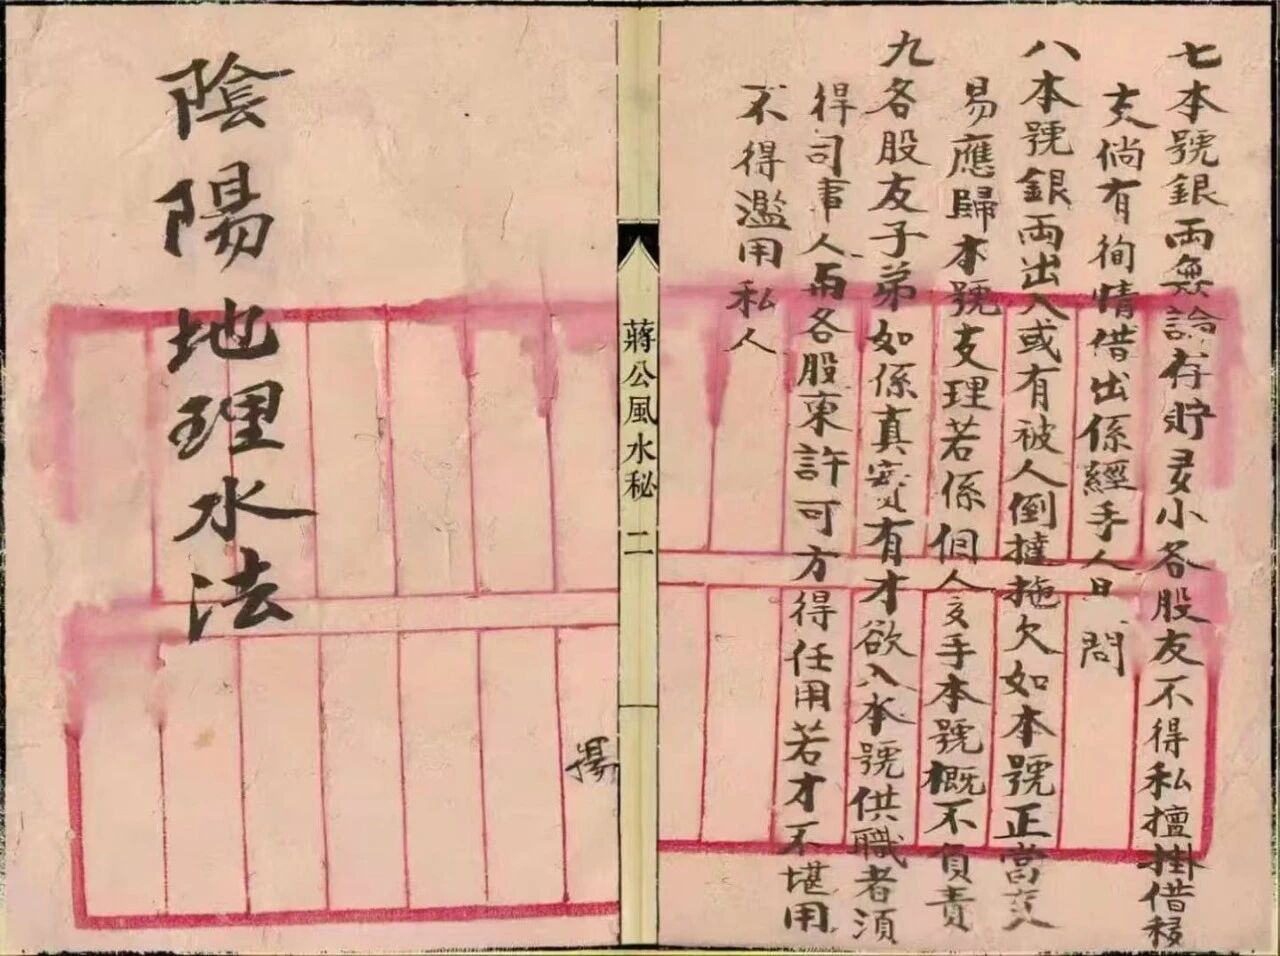 七本號銀両無論存貯多小各股友不得私擅掛借移
支倘有徇情借出係經手人是問
八本號銀両出入或有被人倒撻拖欠如本號正當交
易應歸本號支理若係個人交手本號概不負責
九各股友子弟如係真實有才欲入本號供職者須
得司事人両各股東許可方得任用若才不堪用
不得濫用私人
蔣公風水秘 二
揚
陰陽地理水法